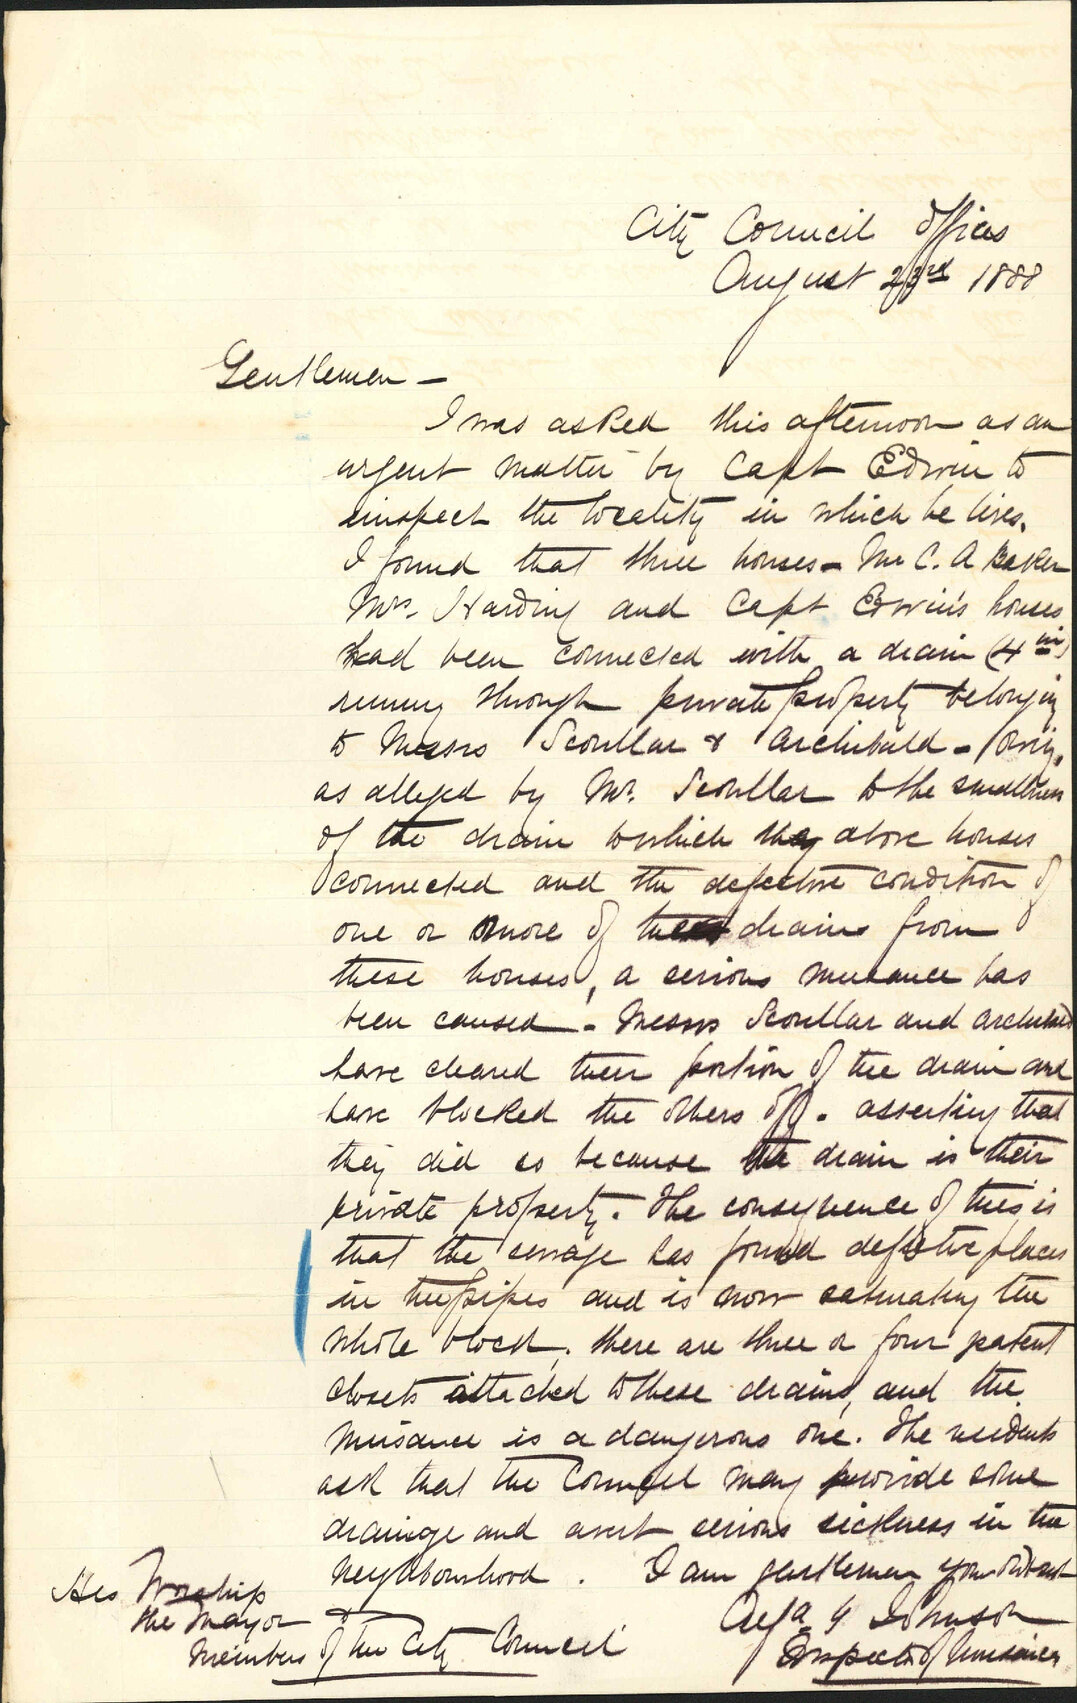 City Council Offices
August 23rd 1888
Gentlemen —
I was asked this afternoon as an
urgent matter by Capt Edwin to
inspect the locality in which he lives.
I found that three houses — Mr C. A Baker
Mrs. Harding and Capt Edwin's houses
had been connected with a drain (4 in)
running through private property belonging
to Messrs Scoullar & Archibald - Owing,
as alleged by Mr. Scoullar to the smallness
of the drain to which the above houses
connected and the defective condition of
one or more of the drains from
these houses, a serious nuisance has
been caused - Messrs Scoullar and Archibald
have cleared their portion of the drain and
have blocked the others off - asserting that
they did so because the drain is their
private property. The consequence of this is
that the sewage has found defective places
in the pipes and is now saturating the
whole block. there are three or four patent
closets attached to these drains, and the
nuisance is a dangerous one. The residents
ask that the Council may provide some
drainage and avert serious sickness in the
neighbourhood. I am gentlemen your obdnt svt
His Worship
the Mayor &
Members of the City Council
Johnson
Inspector of Nuisances